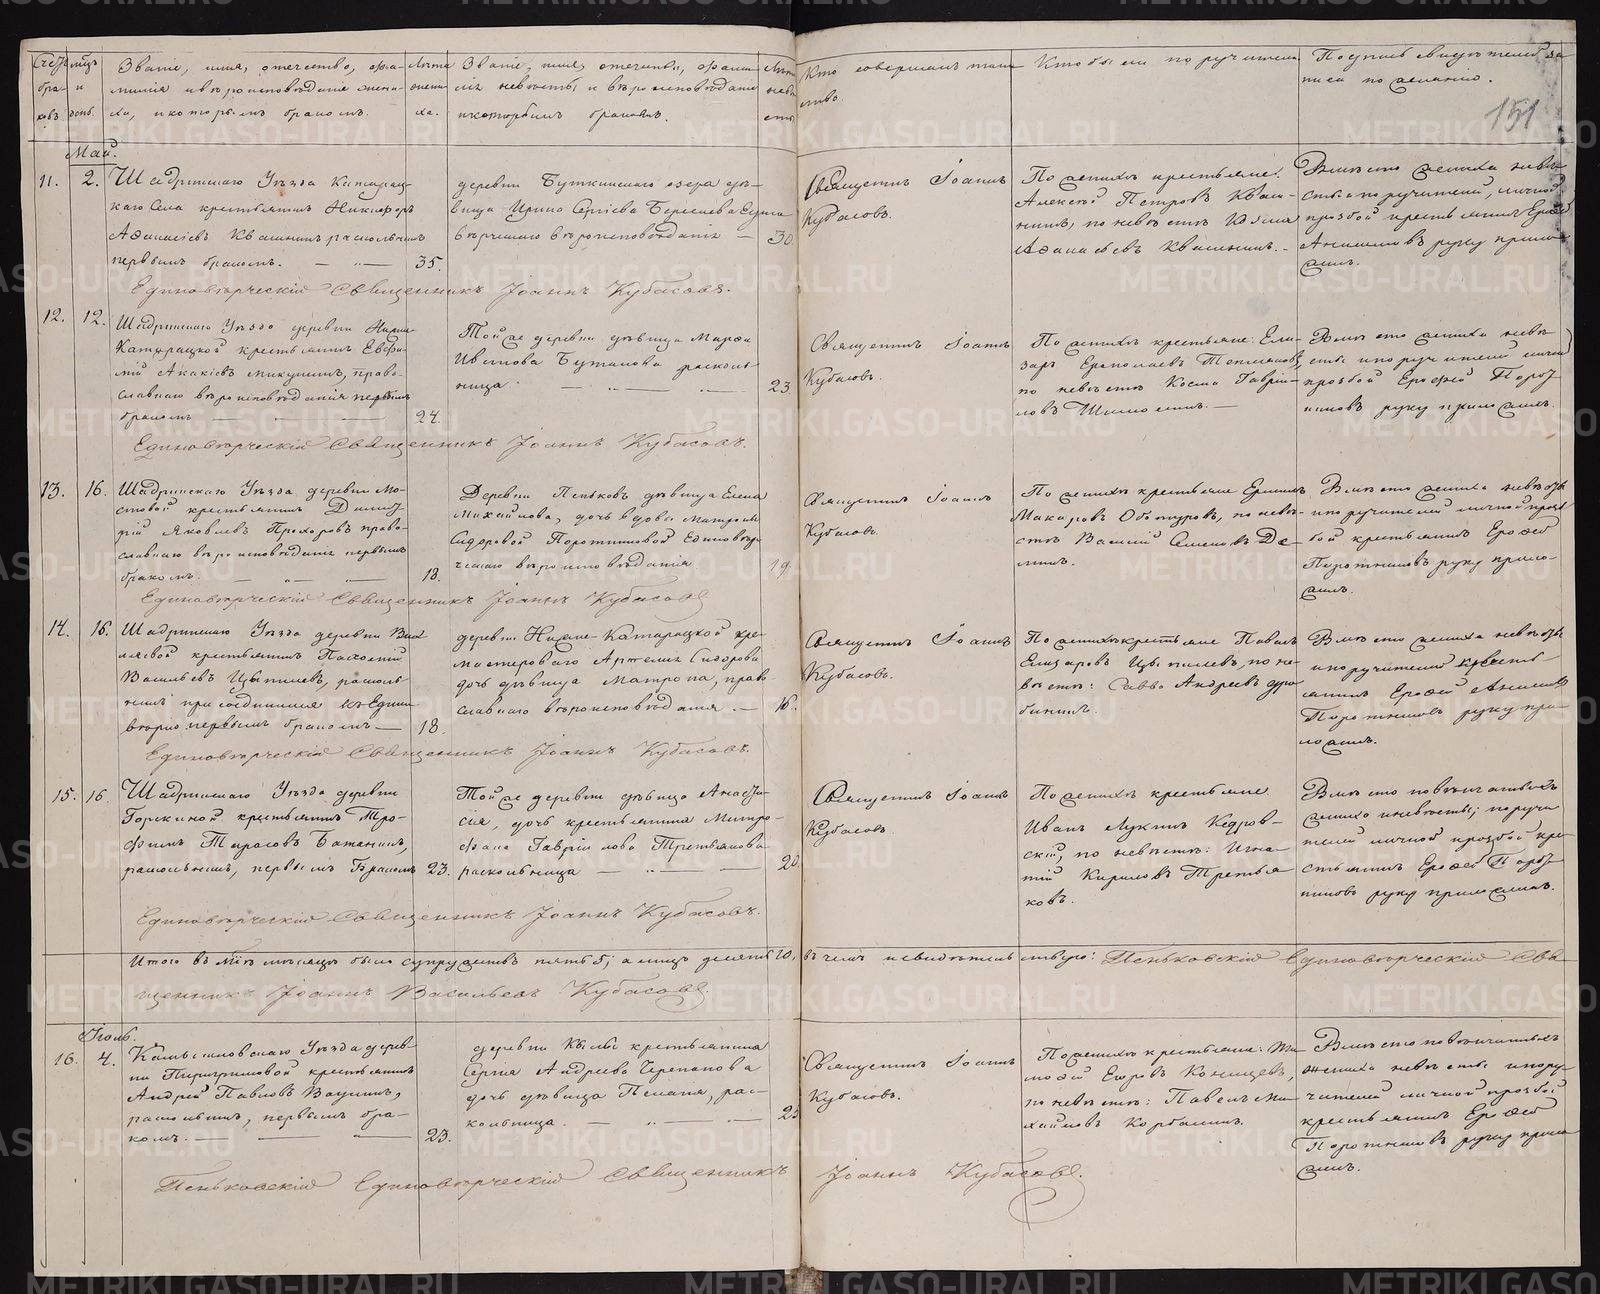 Счетъ
бра-
ковъ
мѣц.
и
день.
Званіе, имя, отчество, фа-
милія и вѣроисповѣданіе жени-
ха, и которымъ бракомъ.
Лѣта
жени-
ха.
Званіе, имя, отчество, фами-
лія невѣсты и вѣроисповѣданіе
и которымъ бракомъ.
Лѣта
невѣ
сты.
Кто совершалъ таин-
ство.
Кто были поручители
Подпись свидѣтелей за-
писи по желанію.
151
Май.
11. 2.
Шадринскаго Уѣзда Катарац-
каго Села крестьянинъ Никифоръ
Аѳанасіевъ Квашнинъ раскольникъ
первымъ бракомъ.
35.
деревни Буткинскаго озера дѣ-
вица Ирина Сергіева Берсенева Едино
вѣрческаго вѣроисповѣданія
30.
Священникъ Іоаннъ
Кубасовъ.
По женихѣ крестьяне:
Алексѣй Петровъ Кваш-
нинъ, по невѣстѣ
Аѳанасьевъ Квашнинъ.
Вмѣсто жениха невѣ-
сты и поручителей, личной
прозбой крестьянинъ Ерофей
руку прило-
жилъ.
Единовѣрческій Священникъ Іоаннъ Кубасовъ.
12. 12.
Шадринскаго Уѣзда деревни Нижне-
Катарацкой крестьянинъ Евфи-
мій Акакіевъ Микушинъ, право-
славнаго вѣроисповѣданія первымъ
бракомъ
24.
Той же деревни дѣвица Марѳа
Иванова Бутакова расколь-
ница.
23.
Священникъ Іоаннъ
Кубасовъ.
По женихѣ крестьяне: Ели-
заръ
по невѣстѣ Косма Гаврі-
ловъ
Вмѣсто жениха невѣ
сты и поручителей личной
прозбой Ерофей Порот
никовъ руку приложилъ.
Единовѣрческій Священникъ Іоаннъ Кубасовъ.
13. 16.
Шадринскаго Уѣзда деревни Мо-
стовой крестьянинъ Дими-
трій Яковлевъ Прохоровъ право-
славнаго вѣроисповѣданія первымъ
бракомъ.
18.
Деревни Пеньковъ дѣвица Елена
Михайлова, дочь вдовы Матроны
Сидоровой Поротниковой Единовѣр-
ческаго вѣроисповѣданія
19.
Священникъ Іоаннъ
Кубасовъ.
По женихѣ крестьяне
Макаровъ по невѣ-
стѣ Василій Семеновъ Де-
минъ.
Вмѣсто жениха невѣсты
и поручителей личной проз
бой крестьянинъ Ерофей
Поротниковъ руку прило-
жилъ.
Единовѣрческій Священникъ Іоаннъ Кубасовъ
14. 16.
Шадринскаго Уѣзда деревни
крестьянинъ
Васильевъ Цыпилевъ, расколь-
никъ присоединился къ Едино-
вѣрію первымъ бракомъ
18.
деревни Нижне-Катарацкой кре-
Сидорова
дочь дѣвица Матрона, право-
славнаго вѣроисповѣданія.
16.
Священникъ Іоаннъ
Кубасовъ.
По женихѣ крестьяне Павелъ
Елизаровъ Цыпилевъ, по не-
вѣстѣ: Савва Андреевъ Дру-
бининъ.
Вмѣсто жениха невѣсты
и поручителей крестья-
нинъ Ерофей
Поротниковъ руку при-
ложилъ.
Единовѣрческій Священникъ Іоаннъ Кубасовъ.
15. 16
Шадринскаго Уѣзда деревни
Горкиной крестьянинъ Тро-
фимъ Тарасовъ Баженинъ,
раскольникъ, первымъ Бракомъ
23.
Той же деревни дѣвица Анаста-
сія, дочь крестьянина Митро-
фана Гаврилова Третьякова
раскольница
20.
Священникъ Іоаннъ
Кубасовъ
По женихѣ крестьяне
Иванъ Лукинъ Кедров-
скій, по невѣстѣ: Игна-
тій Кириловъ Третья
ковъ.
Вмѣсто повѣнчанныхъ
жениха и невѣсты; поручи-
телей личной прозбой кре-
стьянинъ Ерофей Порот
никовъ руку приложилъ.
Единовѣрческій Священникъ Іоаннъ Кубасовъ.
Итого въ Маѣ мѣсяцѣ было супружествъ пять 5, а лицъ десять 10, въ чемъ и свидѣтельствую: Пеньковскій Единовѣрческій Свя
щенникъ Іоаннъ Васильевъ Кубасовъ.
Іюль.
16. 4.
Камышловскаго Уѣзда дерев-
ни крестьянинъ
Андрей Павловъ Ваулинъ,
раскольникъ, первымъ бра-
комъ.
23.
деревни крестьянина
Сергія Андреева Черепанова
дочь дѣвица Пелагія, рас-
кольница.
25
Священникъ Іоаннъ
Кубасовъ.
По женихѣ крестьяне: Ти
моѳей Егоровъ
по невѣстѣ: Павелъ Ми-
хайловъ
Вмѣсто повѣнчанныхъ
жениха невѣсты и пору-
чителей личной прозбой
крестьянинъ Ерофей
Поротниковъ руку прило-
жилъ.
Пеньковскій Единовѣрческій Священникъ Іоаннъ Кубасовъ.
METRIKI.GASO-URAL.RU